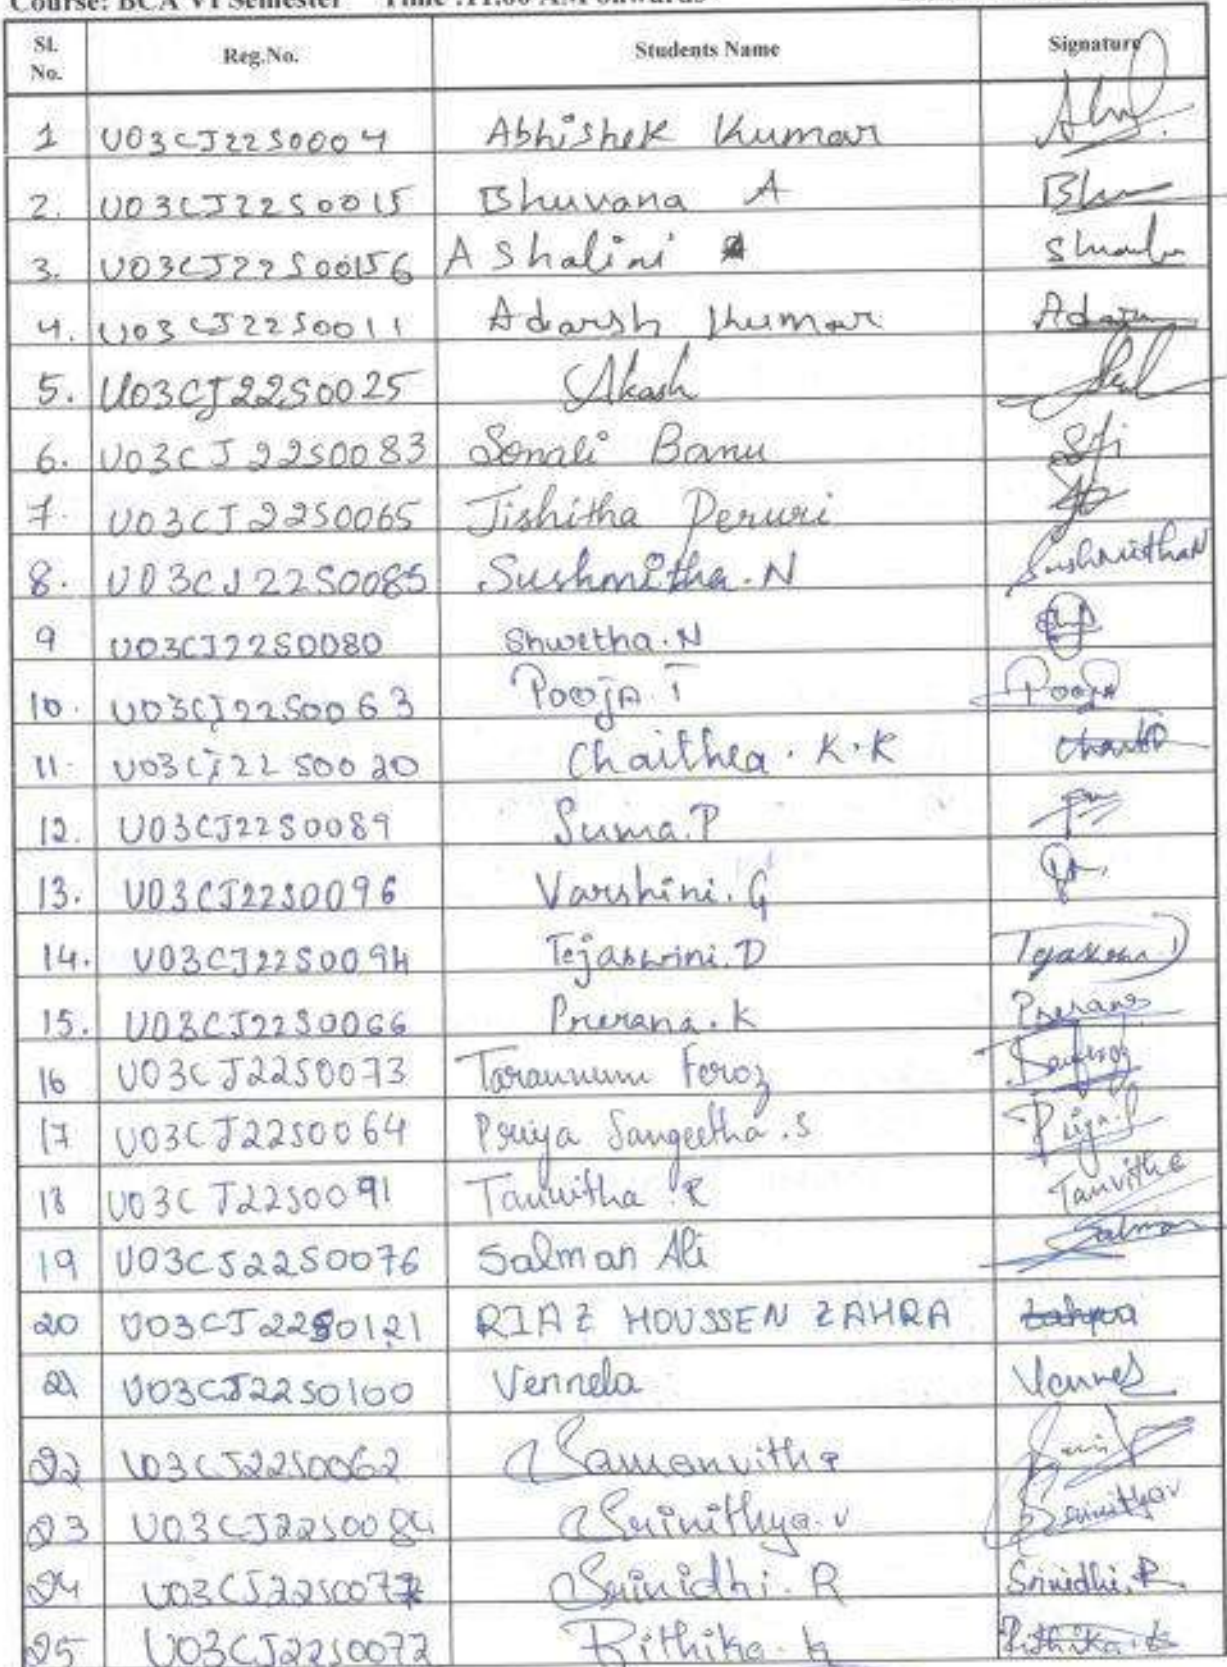 Course: BCA VI Semester Time :11.00 AM onwards
Sl. No. Reg.No. Students Name Signature
1 U03CJ22S0004 Abhishek Kumar
2. U03CJ22S0015 Bhuvana A
3. U03CJ22S00156 A Shalini
4. U03CJ22S0011 Adarsh Kumar Adarsh
5. U03CJ22S0025 Akash
6. U03CJ22S0083 Sonali Banu
7. U03CJ22S0065 Jishitha Peruri
8. U03CJ22S0085 Sushmitha.N SushmithaN
9 U03CJ22S0080 Shwetha.N
10. U03CJ22S0063 Pooja.T Pooja
11. U03CJ22S0020 Chaithra.K.K
12. U03CJ22S0089 Suma.P
13. U03CJ22S0096 Varshini.G
14. U03CJ22S0094 Tejaswini.D
15. U03CJ22S0066 Prerana.K Prerana
16 U03CJ22S0073 Tarannum Feroz
17 U03CJ22S0064 Priya Sangeetha.S
18 U03CJ22S0091 Tanvitha R Tanvitha
19 U03CJ22S0076 Salman Ali Salman
20 U03CJ22S0121 RIAZ HOUSSEN ZAHRA Zahra
21 U03CJ22S0100 Vennela
22 U03CJ22S0062 Samanvitha
23 U03CJ22S0084 Srinithya.v
24 Srinidhi.R Srinidhi.R
25 U03CJ22S0072 Rithika.k Rithika.k